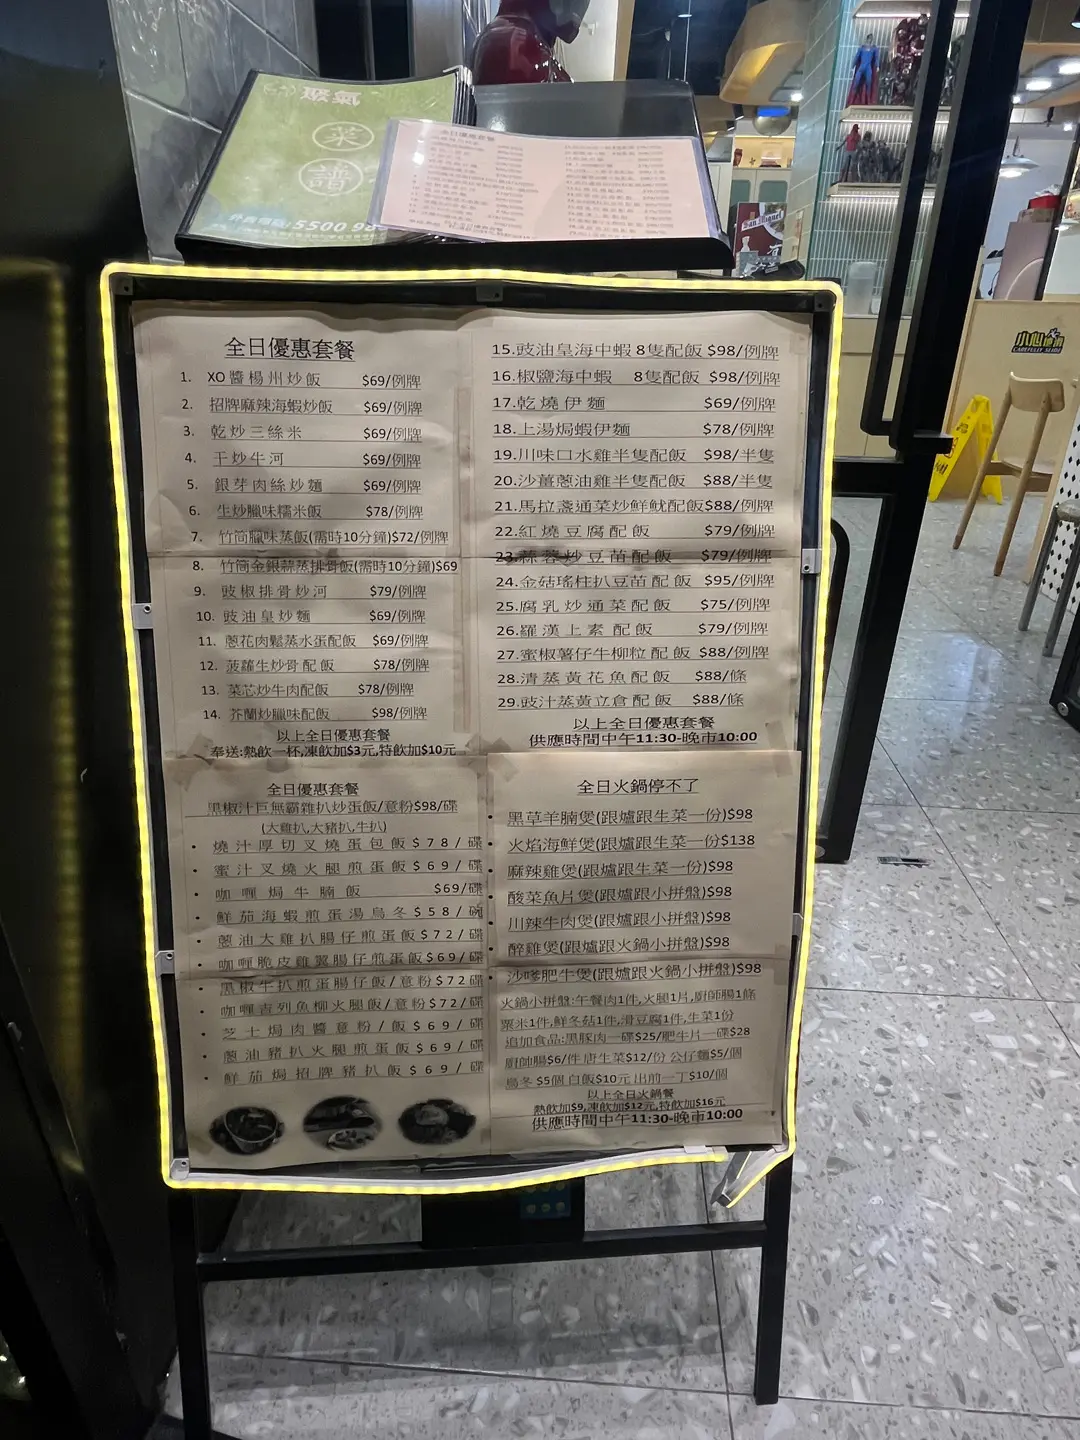 聚氣
菜
譜
5500 98
全日優惠套餐
San Miguel
小心地滑
CAREFULLY SLIDE
全日優惠套餐
1. XO醬楊州炒飯 $69/例牌
2. 招牌麻辣海蝦炒飯 $69/例牌
3. 乾炒三絲米 $69/例牌
4. 干炒牛河 $69/例牌
5. 銀芽肉絲炒麵 $69/例牌
6. 生炒臘味糯米飯 $78/例牌
7. 竹筒臘味蒸飯(需時10分鐘)$72/例牌
8. 竹筒金銀蒜蒸排骨飯(需時10分鐘)$69
9. 豉椒排骨炒河 $79/例牌
10. 豉油皇炒麵 $69/例牌
11. 蔥花肉鬆蒸水蛋配飯 $69/例牌
12. 菠蘿生炒骨配飯 $78/例牌
13. 菜芯炒牛肉配飯 $78/例牌
14. 芥蘭炒臘味配飯 $98/例牌
以上全日優惠套餐
奉送:熱飲一杯,凍飲加$3元,特飲加$10元
15.豉油皇海中蝦 8隻配飯 $98/例牌
16.椒鹽海中蝦 8隻配飯 $98/例牌
17.乾燒伊麵 $69/例牌
18.上湯焗蝦伊麵 $78/例牌
19.川味口水雞半隻配飯 $98/半隻
20.沙薑蔥油雞半隻配飯 $88/半隻
21.馬拉盞通菜炒鮮魷配飯$88/例牌
22.紅燒豆腐配飯 $79/例牌
23.蒜蓉炒豆苗配飯 $79/例牌
24.金菇瑤柱扒豆苗配飯 $95/例牌
25.腐乳炒通菜配飯 $75/例牌
26.羅漢上素配飯 $79/例牌
27.蜜椒薯仔牛柳粒配飯 $88/例牌
28.清蒸黃花魚配飯 $88/條
29.豉汁蒸黃立倉配飯 $88/條
以上全日優惠套餐
供應時間中午11:30-晚市10:00
全日優惠套餐
黑椒汁巨無霸雜扒炒蛋飯/意粉$98/碟
(大雞扒,大豬扒,牛扒)
• 燒汁厚切叉燒蛋包飯$78/碟
• 蜜汁叉燒火腿煎蛋飯$69/碟
• 咖喱焗牛腩飯 $69/碟
• 鮮茄海蝦煎蛋湯烏冬$58/碗
• 蔥油大雞扒腸仔煎蛋飯$72/碟
• 咖喱脆皮雞翼腸仔煎蛋飯$69/碟
• 黑椒牛扒煎蛋腸仔飯/意粉$72碟
• 咖喱吉列魚柳火腿飯/意粉$72/碟
• 芝士焗肉醬意粉/飯$69/碟
• 蔥油豬扒火腿煎蛋飯$69/碟
• 鮮茄焗招牌豬扒飯$69/碟
全日火鍋停不了
• 黑草羊腩煲(跟爐跟生菜一份)$98
• 火焰海鮮煲(跟爐跟生菜一份)$138
• 麻辣雞煲(跟爐跟生菜一份)$98
• 酸菜魚片煲(跟爐跟小拼盤)$98
• 川辣牛肉煲(跟爐跟小拼盤)$98
• 醉雞煲(跟爐跟火鍋小拼盤)$98
• 沙嗲肥牛煲(跟爐跟火鍋小拼盤)$98
火鍋小拼盤:午餐肉1件,火腿1片,廚師腸1條
粟米1件,鮮冬菇1件,滑豆腐1件,生菜1份
追加食品:黑豚肉一碟$25/肥牛片一碟$28
廚師腸$6/件 唐生菜$12/份 公仔麵$5/個
烏冬$5個 白飯$10元 出前一丁$10/個
以上全日火鍋餐
熱飲加$9,凍飲加$12元,特飲加$16元
供應時間中午11:30-晚市10:00